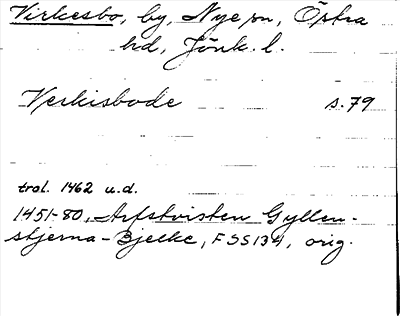 Virkesbo, by, Nye sn, Östra
hd, Jönk. l.
Verkisbode s. 79
trol. 1462 u.d.
1451-80, Arfstvisten Gyllen-
stjerna-Bjelke, FSS134, orig.